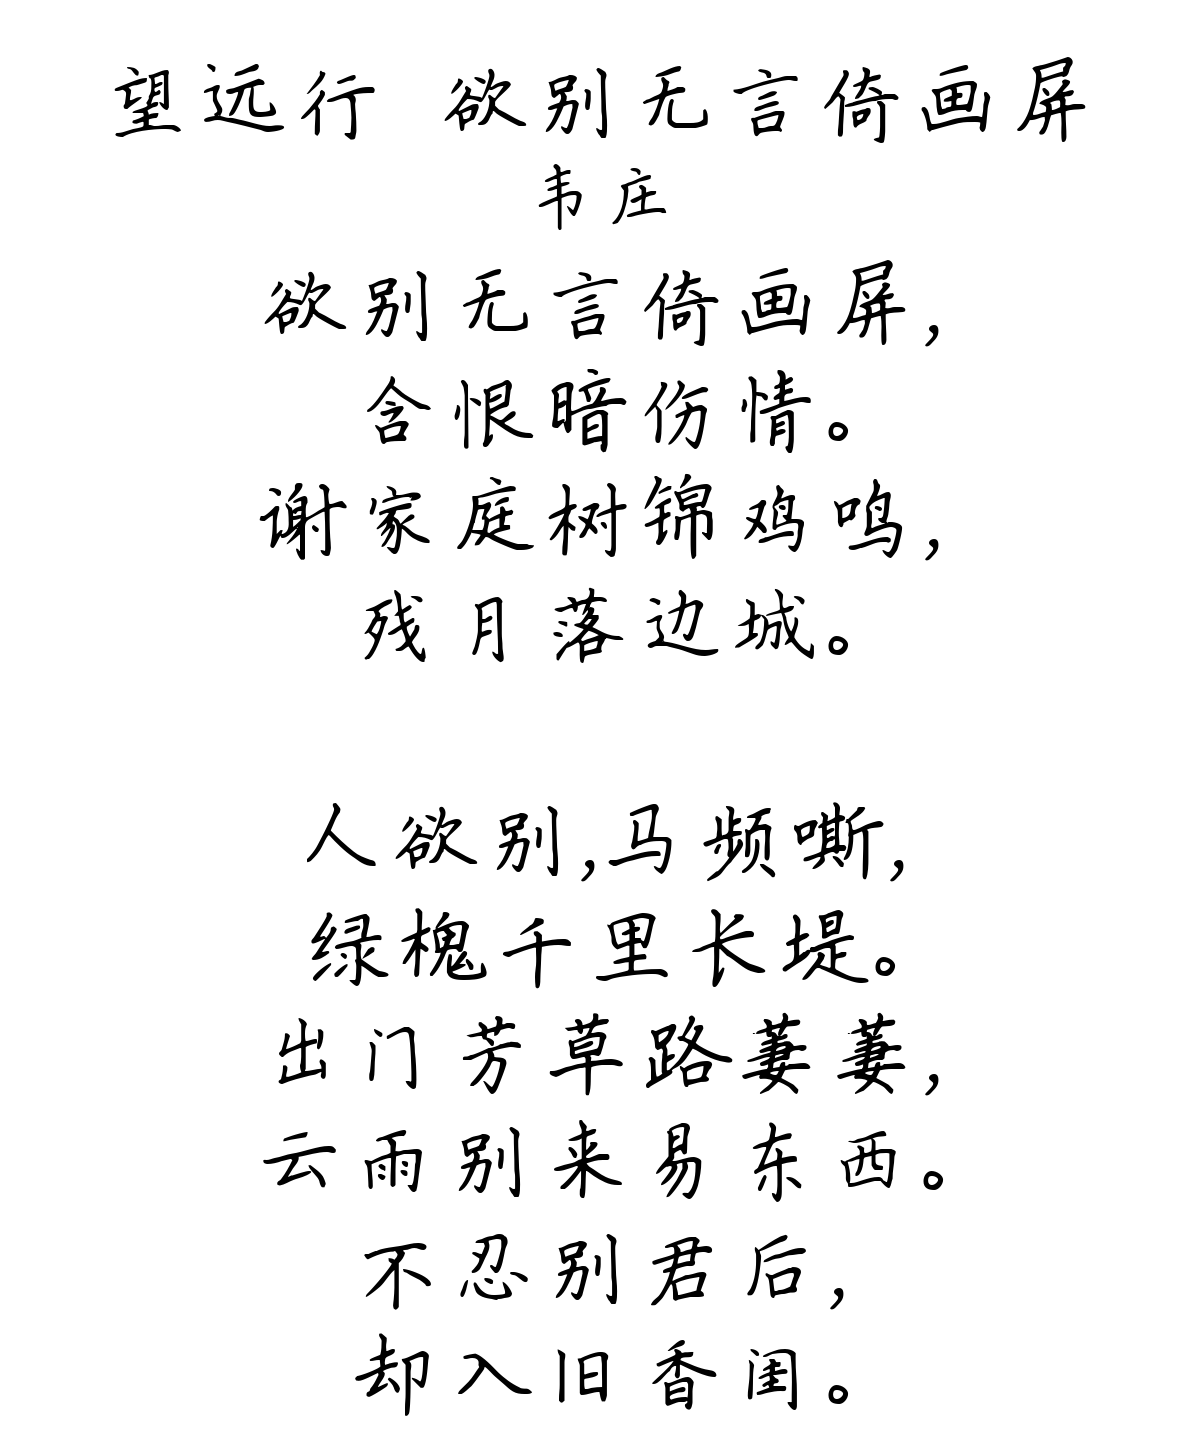 望远行 欲别无言倚画屏
韦庄
欲别无言倚画屏,
含恨暗伤情。
谢家庭树锦鸡鸣,
残月落边城。
人欲别,马频嘶,
绿槐千里长堤。
出门芳草路萋萋,
云雨别来易东西。
不忍别君后,
却入旧香闺。